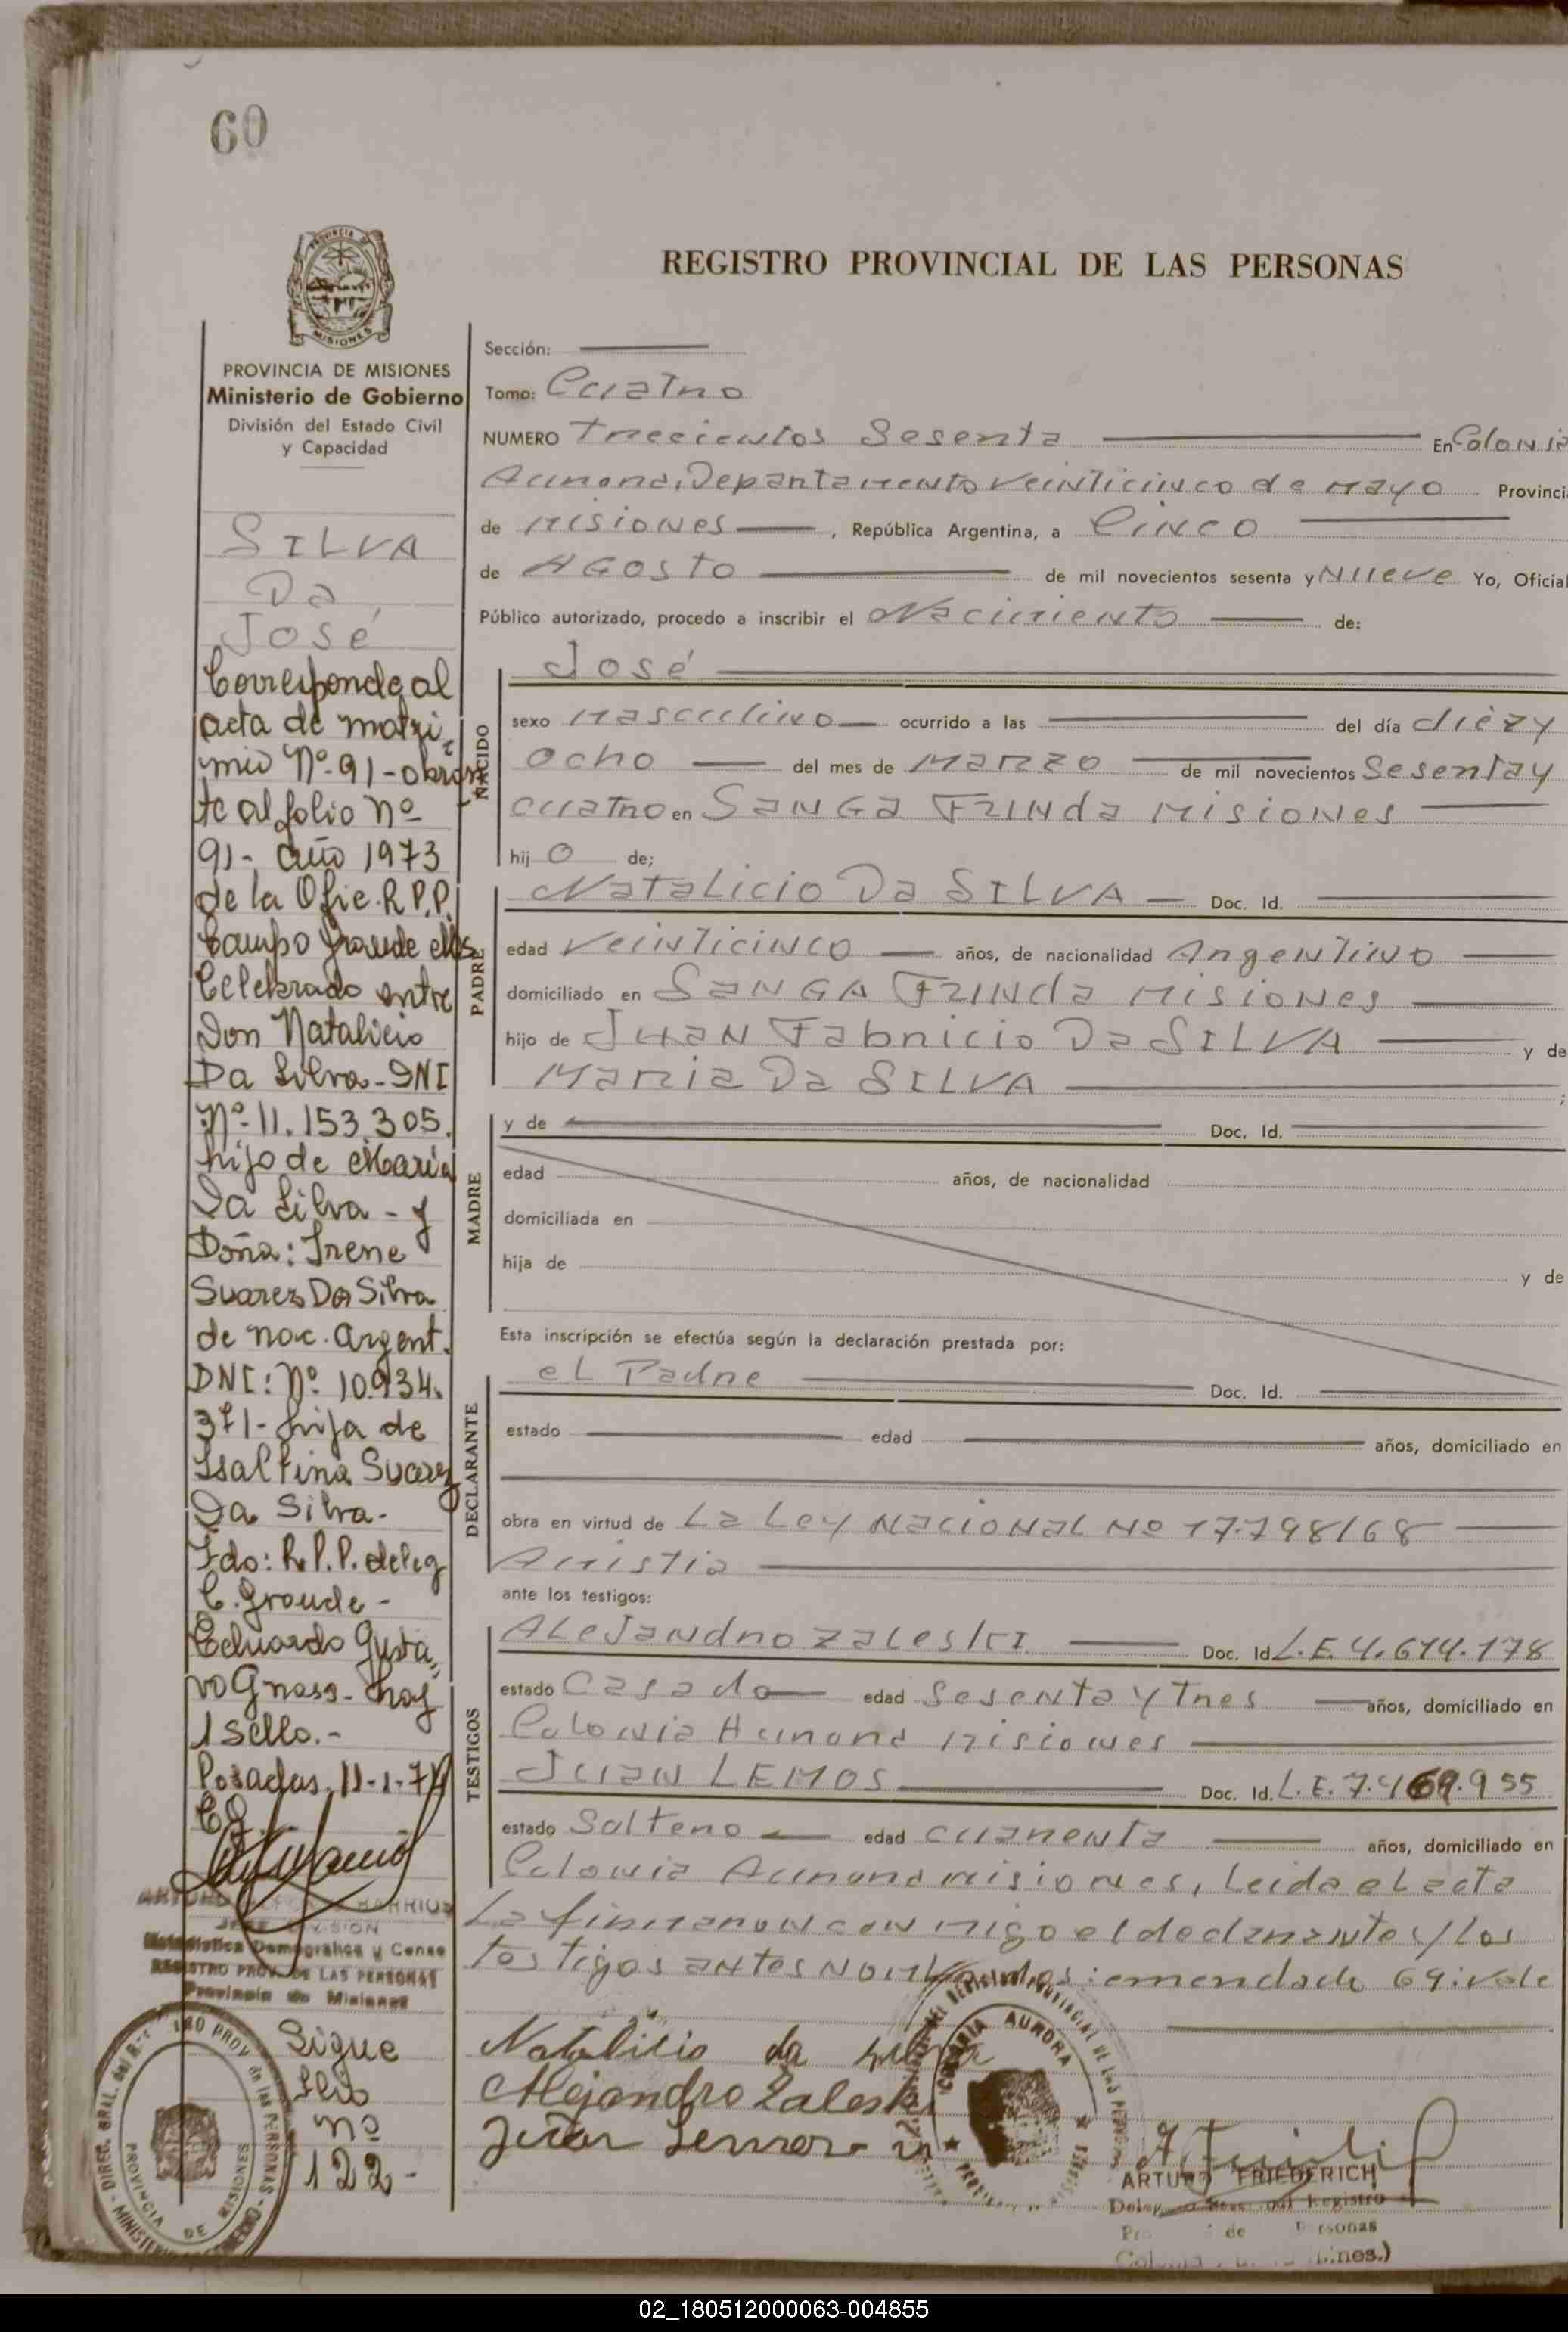 60
REGISTRO PROVINCIAL DE LAS PERSONAS
PROVINCIA DE MISIONES
Ministerio de Gobierno
División del Estado Civil
y Capacidad
SILVA
Da
José
Corresponde al
acta de matri,
mio Nº 91-obran
te al folio nº
91- año 1973
de la Ofic. R.P.P.
Campo Grande Ms
Celebrado entre
Don Natalicio
Da Silva-DNI
Nº 11.153.305.
hijo de Maria
Da Silva - y
Doña: Irene
Suarez Da Silva
de nac. Argent.
DNI: Nº 10.934.
371- hija de
Isaltina Suarez
Da Silva-
Fdo: R.P.P. deleg
C. Grande-
Eduardo Gusta,
vo Gnass- hay
1 sello.-
Posadas, 11-1-74
JEFE DIVISION
Estadistica Demografica y Censo
REGISTRO PROV. DE LAS PERSONAS
Provincia de Misiones
Sigue
flio
nº
122-
Sección:
Tomo: Cuatro
NUMERO Trecientos Sesenta En Colonia
Aurora, Departamento Veinticinco de Mayo Provinci
de Misiones , República Argentina, a Cinco
de Agosto de mil novecientos sesenta y Nueve Yo, Oficial
Público autorizado, procedo a inscribir el Nacimiento de:
José
NACIDO
sexo Masculino ocurrido a las del día diez y
Ocho del mes de Marzo de mil novecientos Sesenta y
cuatro en Sanga Funda Misiones
hij o de;
PADRE
Natalicio Da SILVA Doc. Id.
edad Veinticinco años, de nacionalidad Argentino
domiciliado en Sanga Funda Misiones
hijo de Juan Fabricio Da SILVA y de
Maria Da SILVA ;
MADRE
y de Doc. Id.
edad años, de nacionalidad
domiciliada en
hija de y de
Esta inscripción se efectúa según la declaración prestada por:
DECLARANTE
el Padre Doc. Id.
estado edad años, domiciliado en
obra en virtud de La Ley Nacional Nº 17.798/68
Amistia
ante los testigos:
TESTIGOS
Alejandro Zaleski Doc. Id. L.E. 4.614.178
estado Casado edad Sesenta y Tres años, domiciliado en
Colonia Aurora Misiones
Juan LEMOS Doc. Id. L.E. 7.469.955
estado Soltero edad cuarenta años, domiciliado en
Colonia Aurora Misiones, Leida el acta
La firmaron conmigo el declarante y los
testigos antes nombrados: emendado 69: vale
Natalicio da Silva
Alejandro Zaleski
Juan Lemos
ARTURO FRIEDERICH
02_180512000063-004855